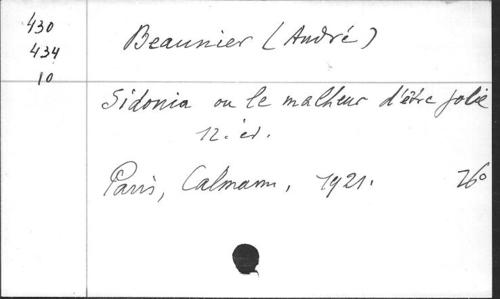 430
434
10
Beaunier (André)
Sidonia ou le malheur d'être jolie
12. éd.
Paris, Calmann, 1921. 16°